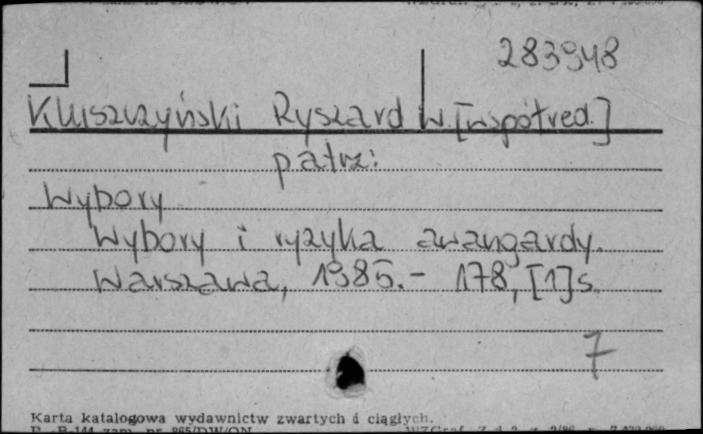 283948
Kluszczyński Ryszard W. [współred.]
patrz:
Wybory
Wybory i ryzyka awangardy.
Warszawa, 1985.- 178, [1]s.
7
Karta katalogowa wydawnictw zwartych i ciągłych.
zam. nr 865/DWON